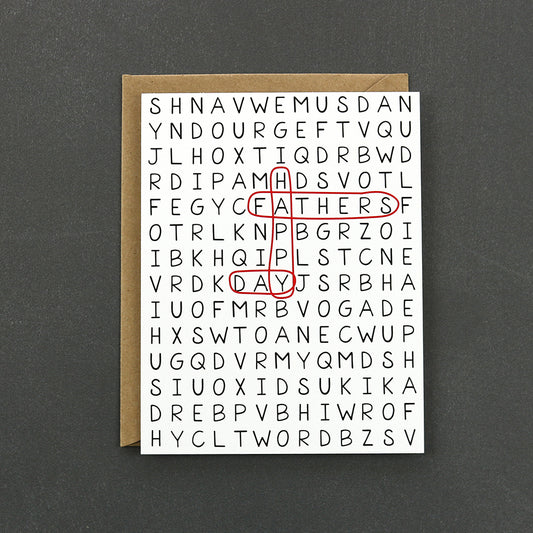 SHNAVWEMUSDAN
YNDOURGEFTVQU
JLHOXTIQDRBWD
RDIPAMHDSVOTL
FEGYCFATHERSF
OTRLKNPBGRZOI
IBKHQIPLSTCNE
VRDKDAYJSRBHA
IUOFMRBVOGADE
HXSWTOANECWUP
UGQDVRMYQMDSH
SIUOXIDSUKIKA
DREBPVBHIWROF
HYCLTWORDBZSV